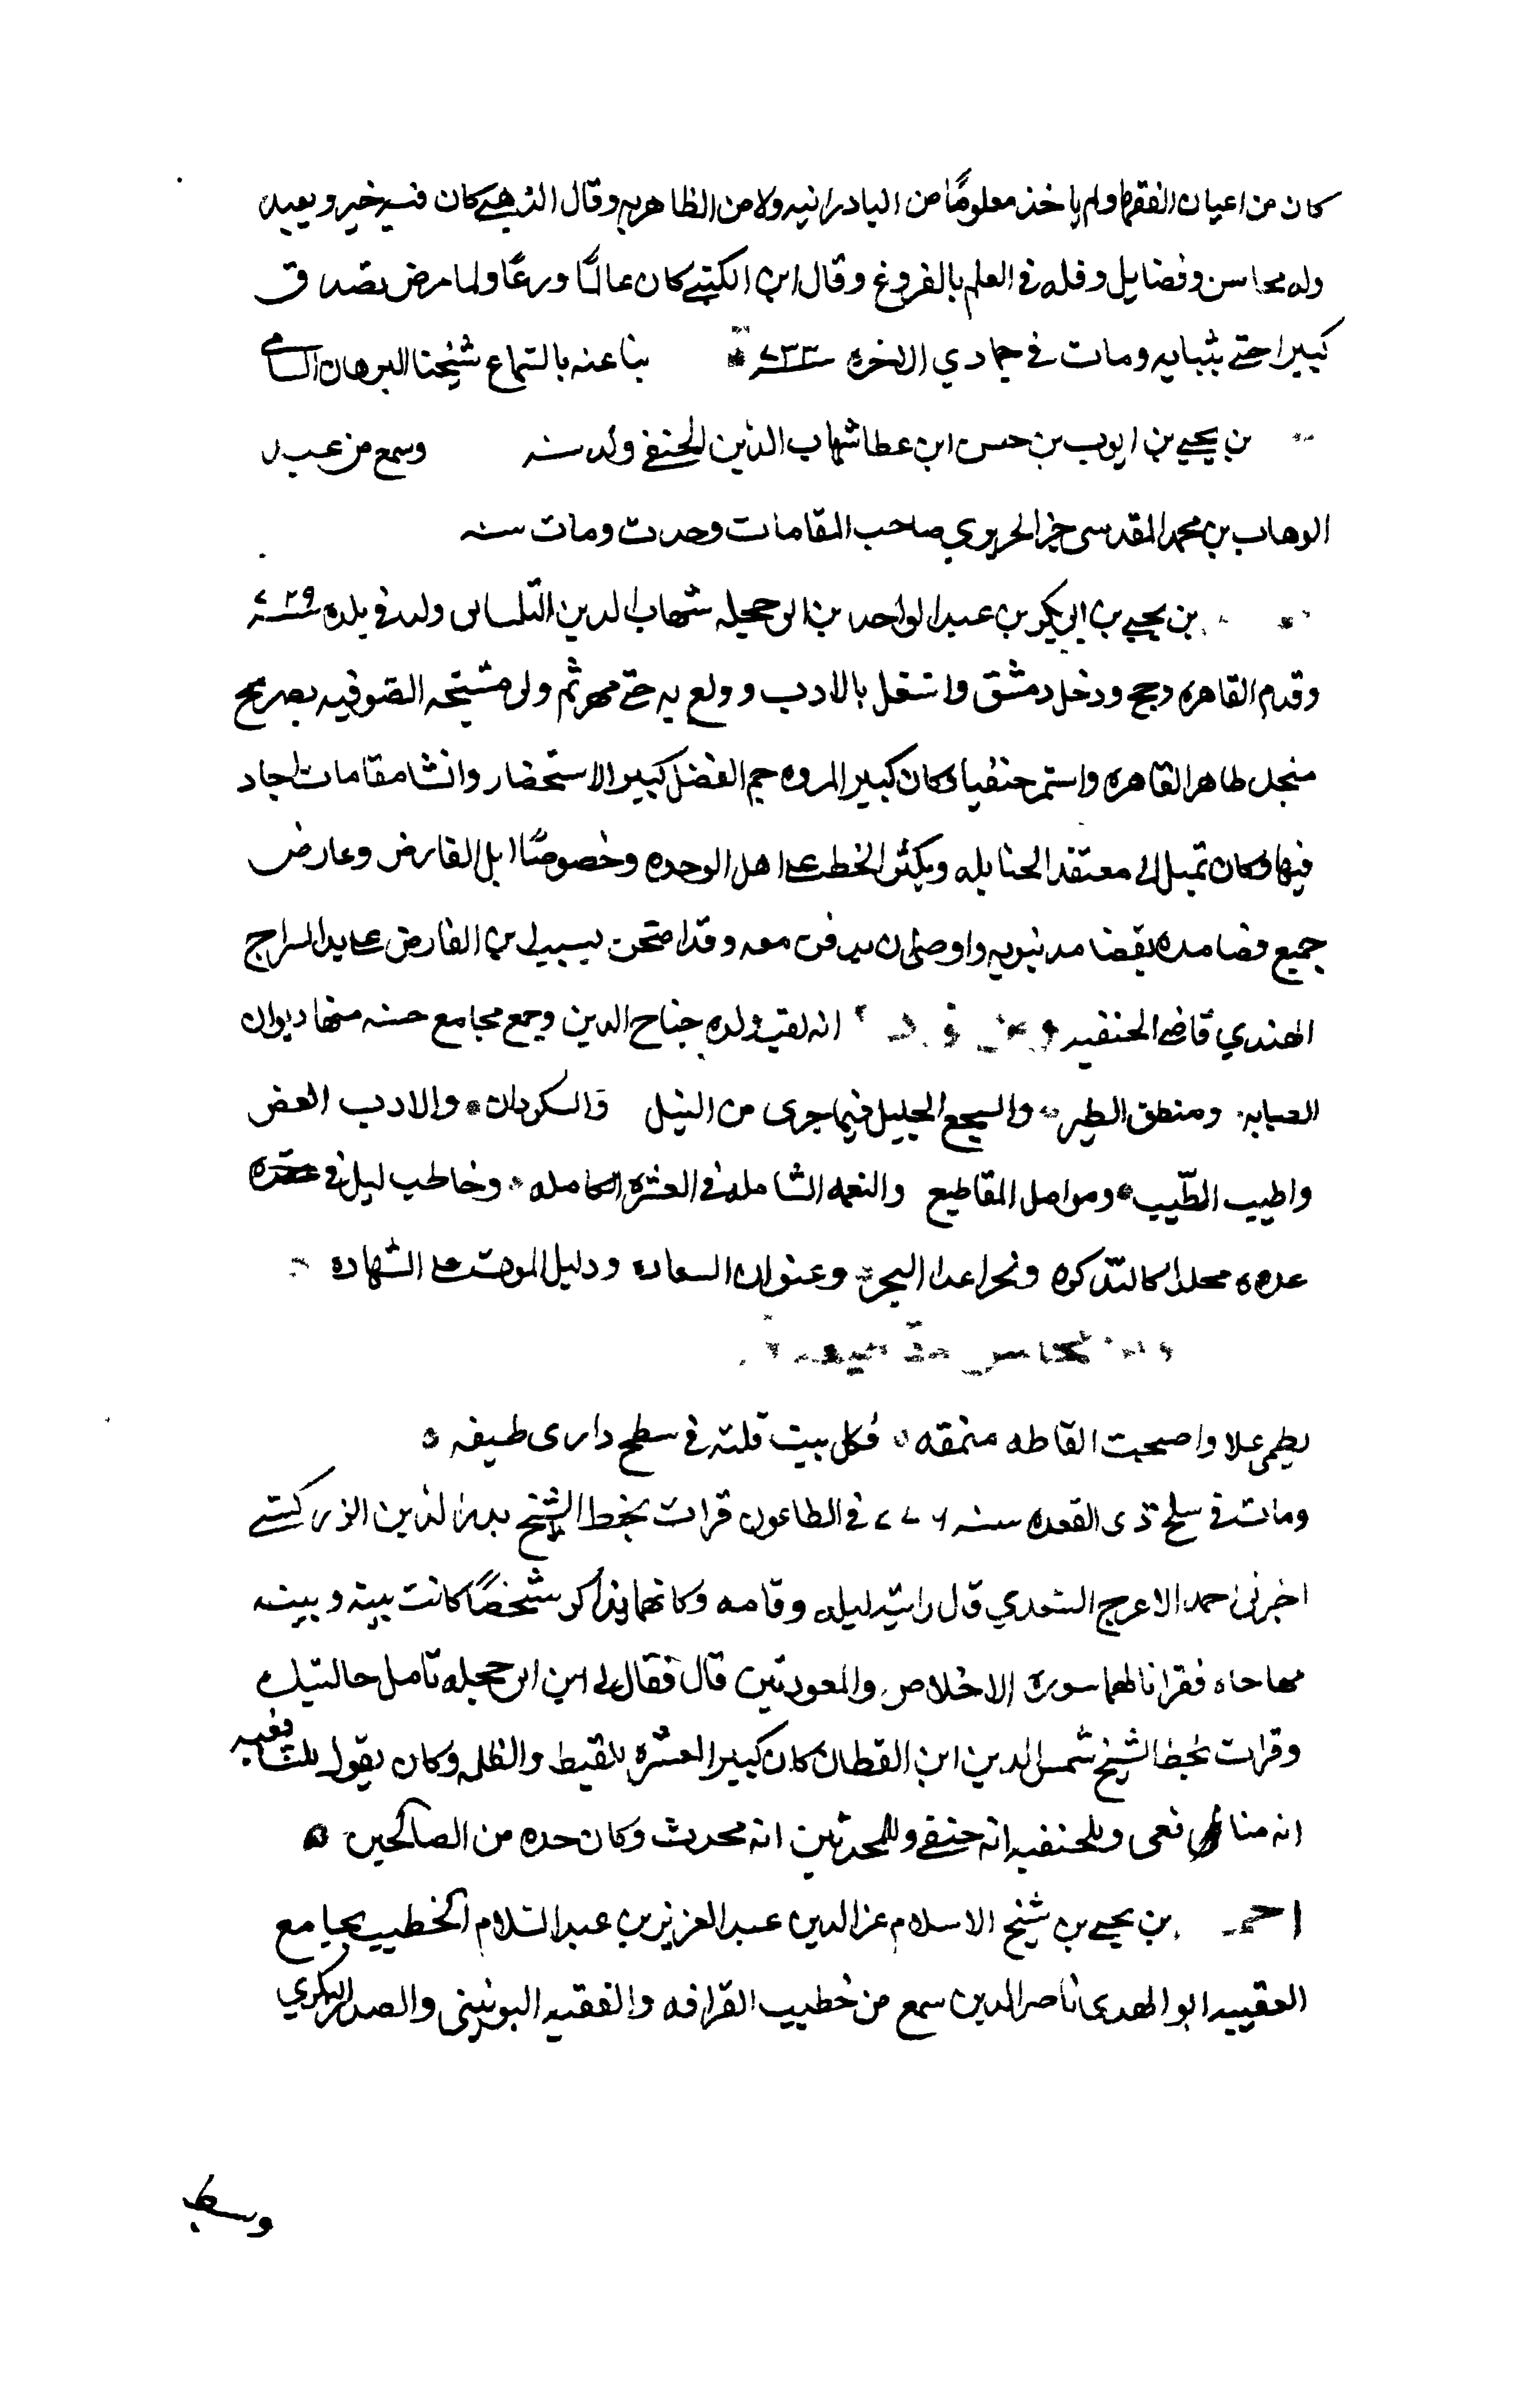 كان من اعيان الفقها ولم ياخذ معلومًا من البادرانيه ولا من الظاهريه وقال الذهبي كان فيه خير وتعبد
وله محاسن وفضايل وفله في العلم بالفروع وقال ابن الكتبي كان عالمًا ورعًا ولما مرض تصدق
كبيرا حتى بثيابه ومات في جمادي الاخره سنة ٧٣٣ ثنا عنه بالسماع شيخنا البرهان الشامي
بن يحيي بن ايوب بن حسن ابن عطا شهاب الدين الحنفي ولد سنه وسمع من عبد
الوهاب بن محمد المقدسي خبر الحريري صاحب المقامات وحدث ومات سنه
بن يحيي بن ابي بكر بن عبد الواحد بن ابي حجله شهاب الدين التلمساني ولد في بلده سنة ٧٢٥
وقدم القاهره وحج ودخل دمشق واشتغل بالادب وولع به حتى مهر ثم ولى مشيخه الصوفيه بصريح
منجك ظاهر القاهره واستمر حنفيا وكان كبير المروه جم الفضل كبير الاستحضار وانشا مقامات اجاد
فيها وكان تميل الى معتقد الحنابله ويكثر الخط على اهل الوحده وخصوصًا ابن الفارض وعارض
جميع قصايده بقصايد نبويه واوصى ان يدفن معه وقد امتحن بسبب ابن الفارض على يد السراج
الهندي قاضي الحنفيه انه لقب ولده جناح الدين وجمع مجاميع حسنه منها ديوان
الصبابه ومنطق الطير والسجع الجليل فيما جرى من النيل والسكردان والادب الغض
واطيب الطيب ومواصل المقاطيع والنعمه الشامله في العشره الكامله وحاطب ليل في عشره
عدده مجلدا كالتذكره ونحر اعدا البحر وعنوان السعاده ودليل الموت على الشهاده
نظمي علا واصبحت الفاظه منمقه فكل بيت قلته في سطح داري طبقه
ومات في سلخ ذى القعده سنه ٧٧٦ في الطاعون قرات بخط الشيخ بدر الدين الزركشي
اخبرني احمد الاعرج السعدي قال رايت ليله وقامه وكانهما تذاكر شخصًا كانت بينه وبينه
مهاجاه فقرانا لهما سورة الاخلاص والمعوذتين قال فقال لى ابن ابى حجله تامل حالتيك
وقرات بخط الشيخ شمس الدين ابن القطان كان كبير العشره للقبط والظلمه وكان يقول للشافعيه
انه شافعى وللحنفيه انه حنفي وللمحدثين انه محدث وكان جده من الصالحين
احمد بن يحيي بن شيخ الاسلام عز الدين عبد العزيز بن عبد السلام الخطيب بجامع
العقيبه ابو الهدى ناصر الدين سمع من خطيب القرافه والفقيه اليونيني والصدر البكري